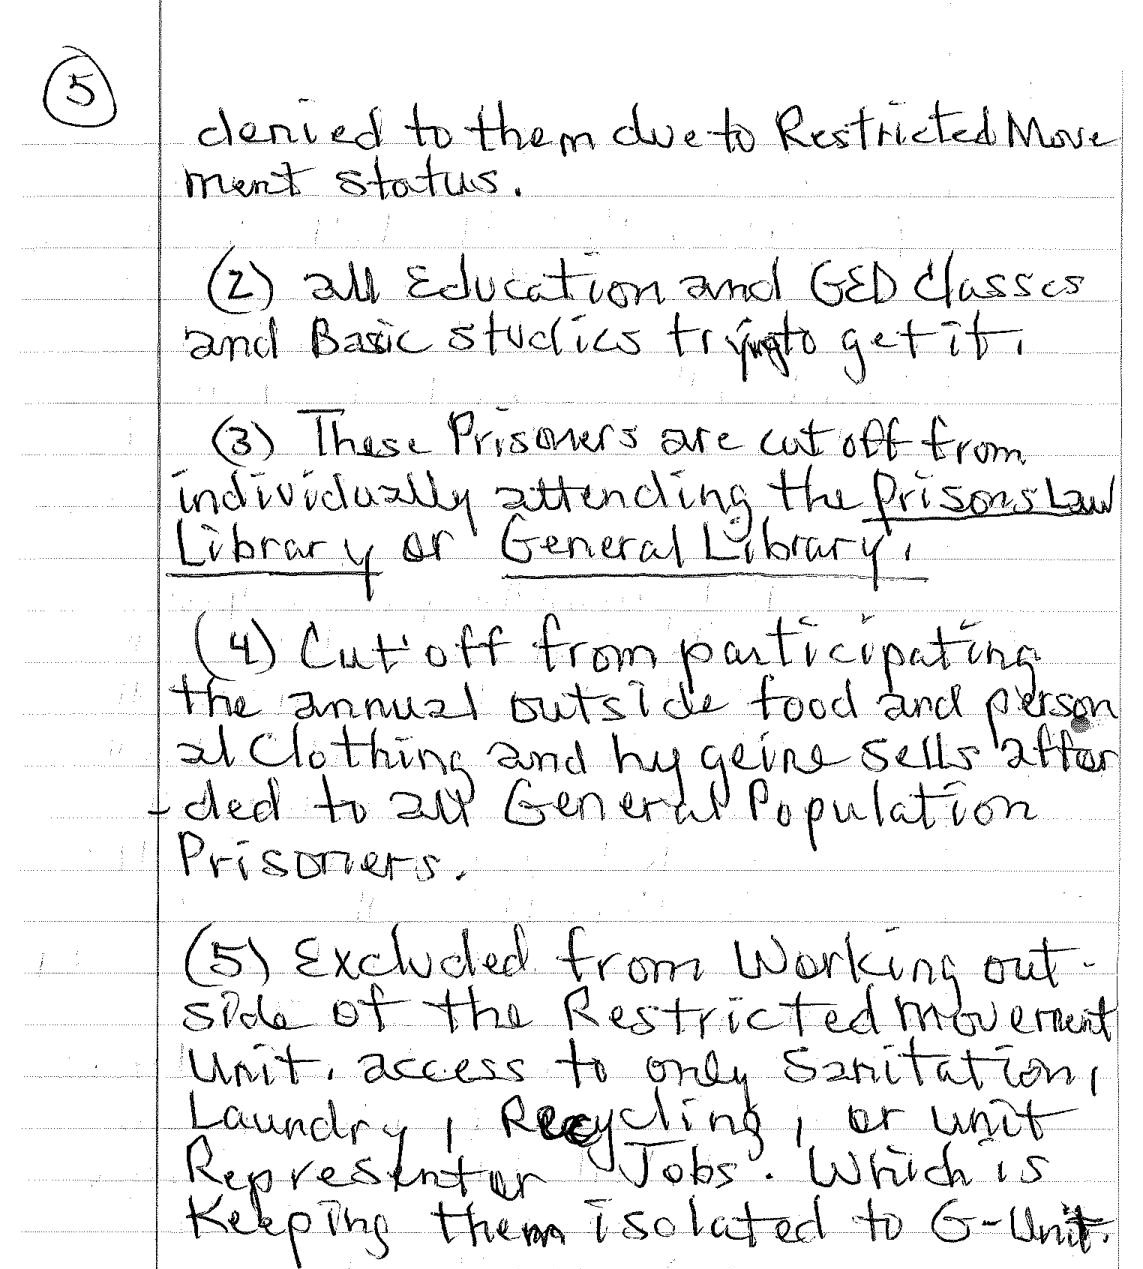 5
denied to them due to Restricted Move
ment status.
(2) all Education and GED Classes
and Basic studies trying to get it.
(3) These Prisoners are cut off from
individually attending the prisons Law
Library or General Library.
(4) Cut off from participating
the annual outside food and person
al Clothing and hygeine sells affor
-ded to all General Population
Prisoners.
(5) Excluded from Working out-
side of the Restricted Movement
Unit. access to only Sanitation,
Laundry, Recycling, or unit
Representor Jobs. Which is
Keeping them isolated to G-Unit.